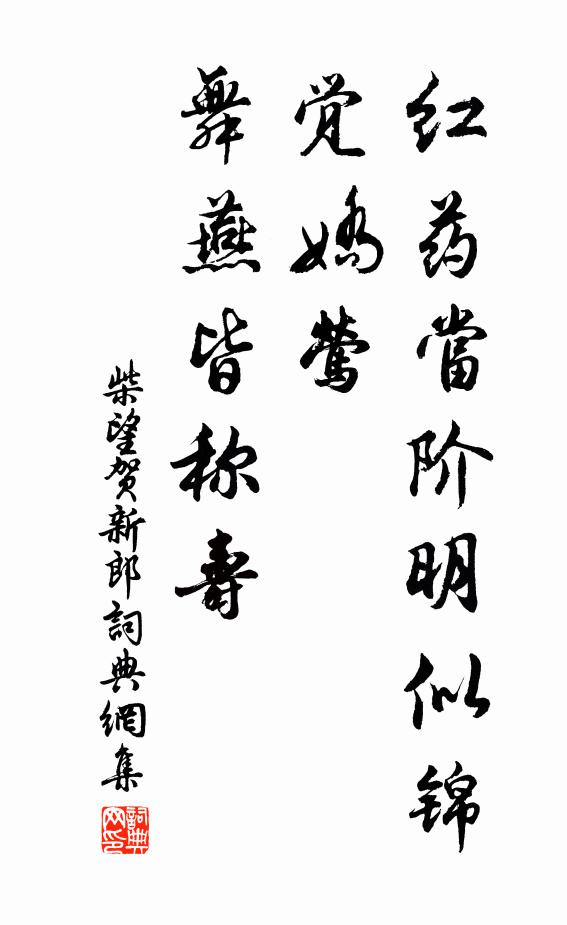 红药當阶明似锦
觉嬌莺
舞燕皆称壽
柴望贺新郎詞典網集
詞典网印